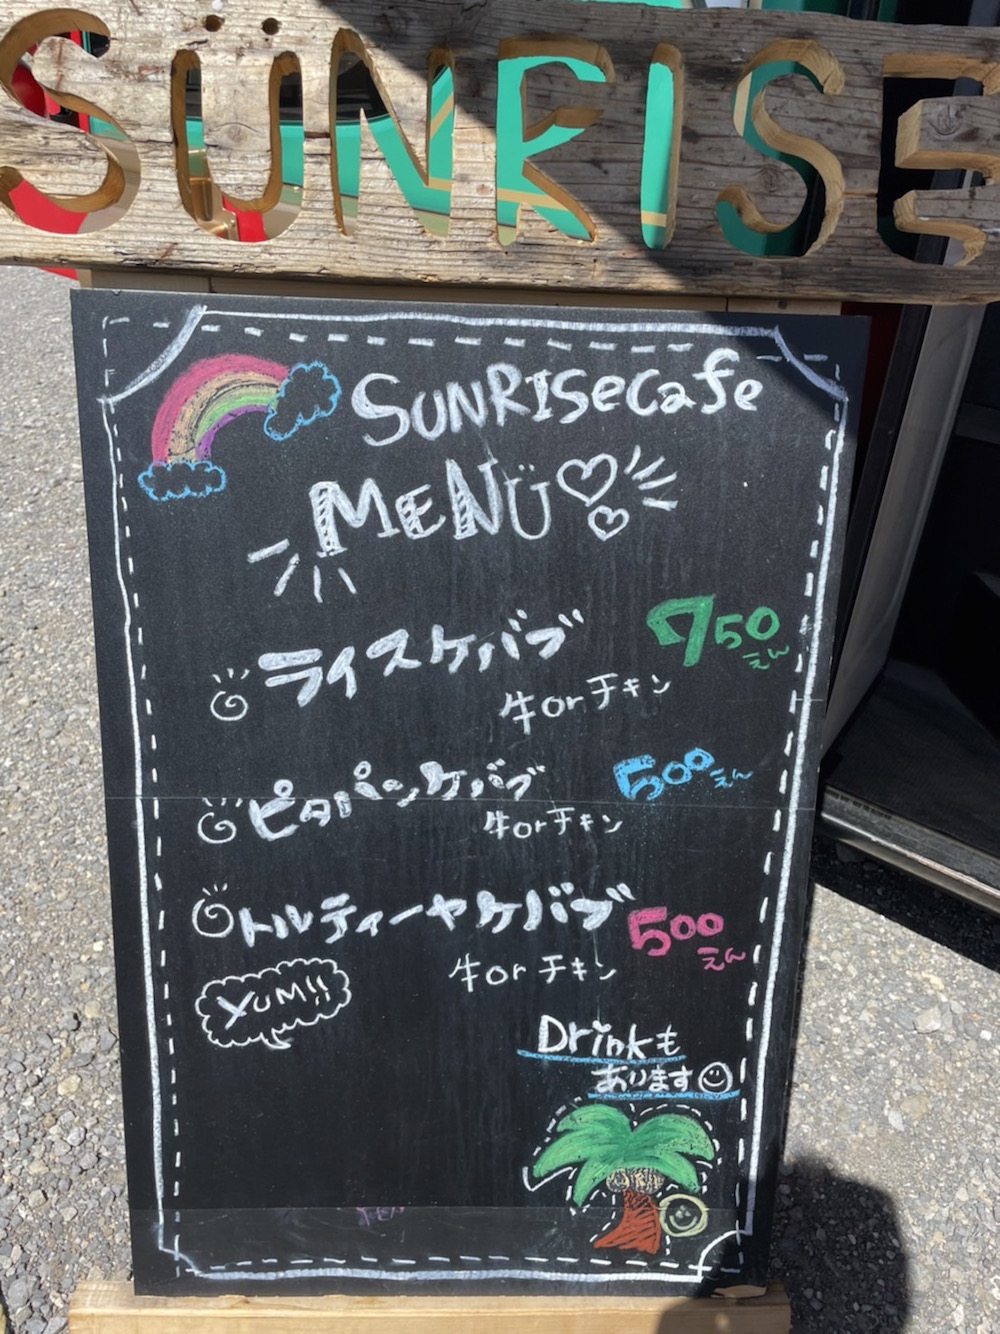 SÜNRISE
SUNRISeCafe
MENÜ
ライスケバブ 750えん
牛orチキン
ピタパンケバブ 500えん
牛orチキン
トルティーヤケバブ 500えん
牛orチキン
YUM!!
Drinkも
あります